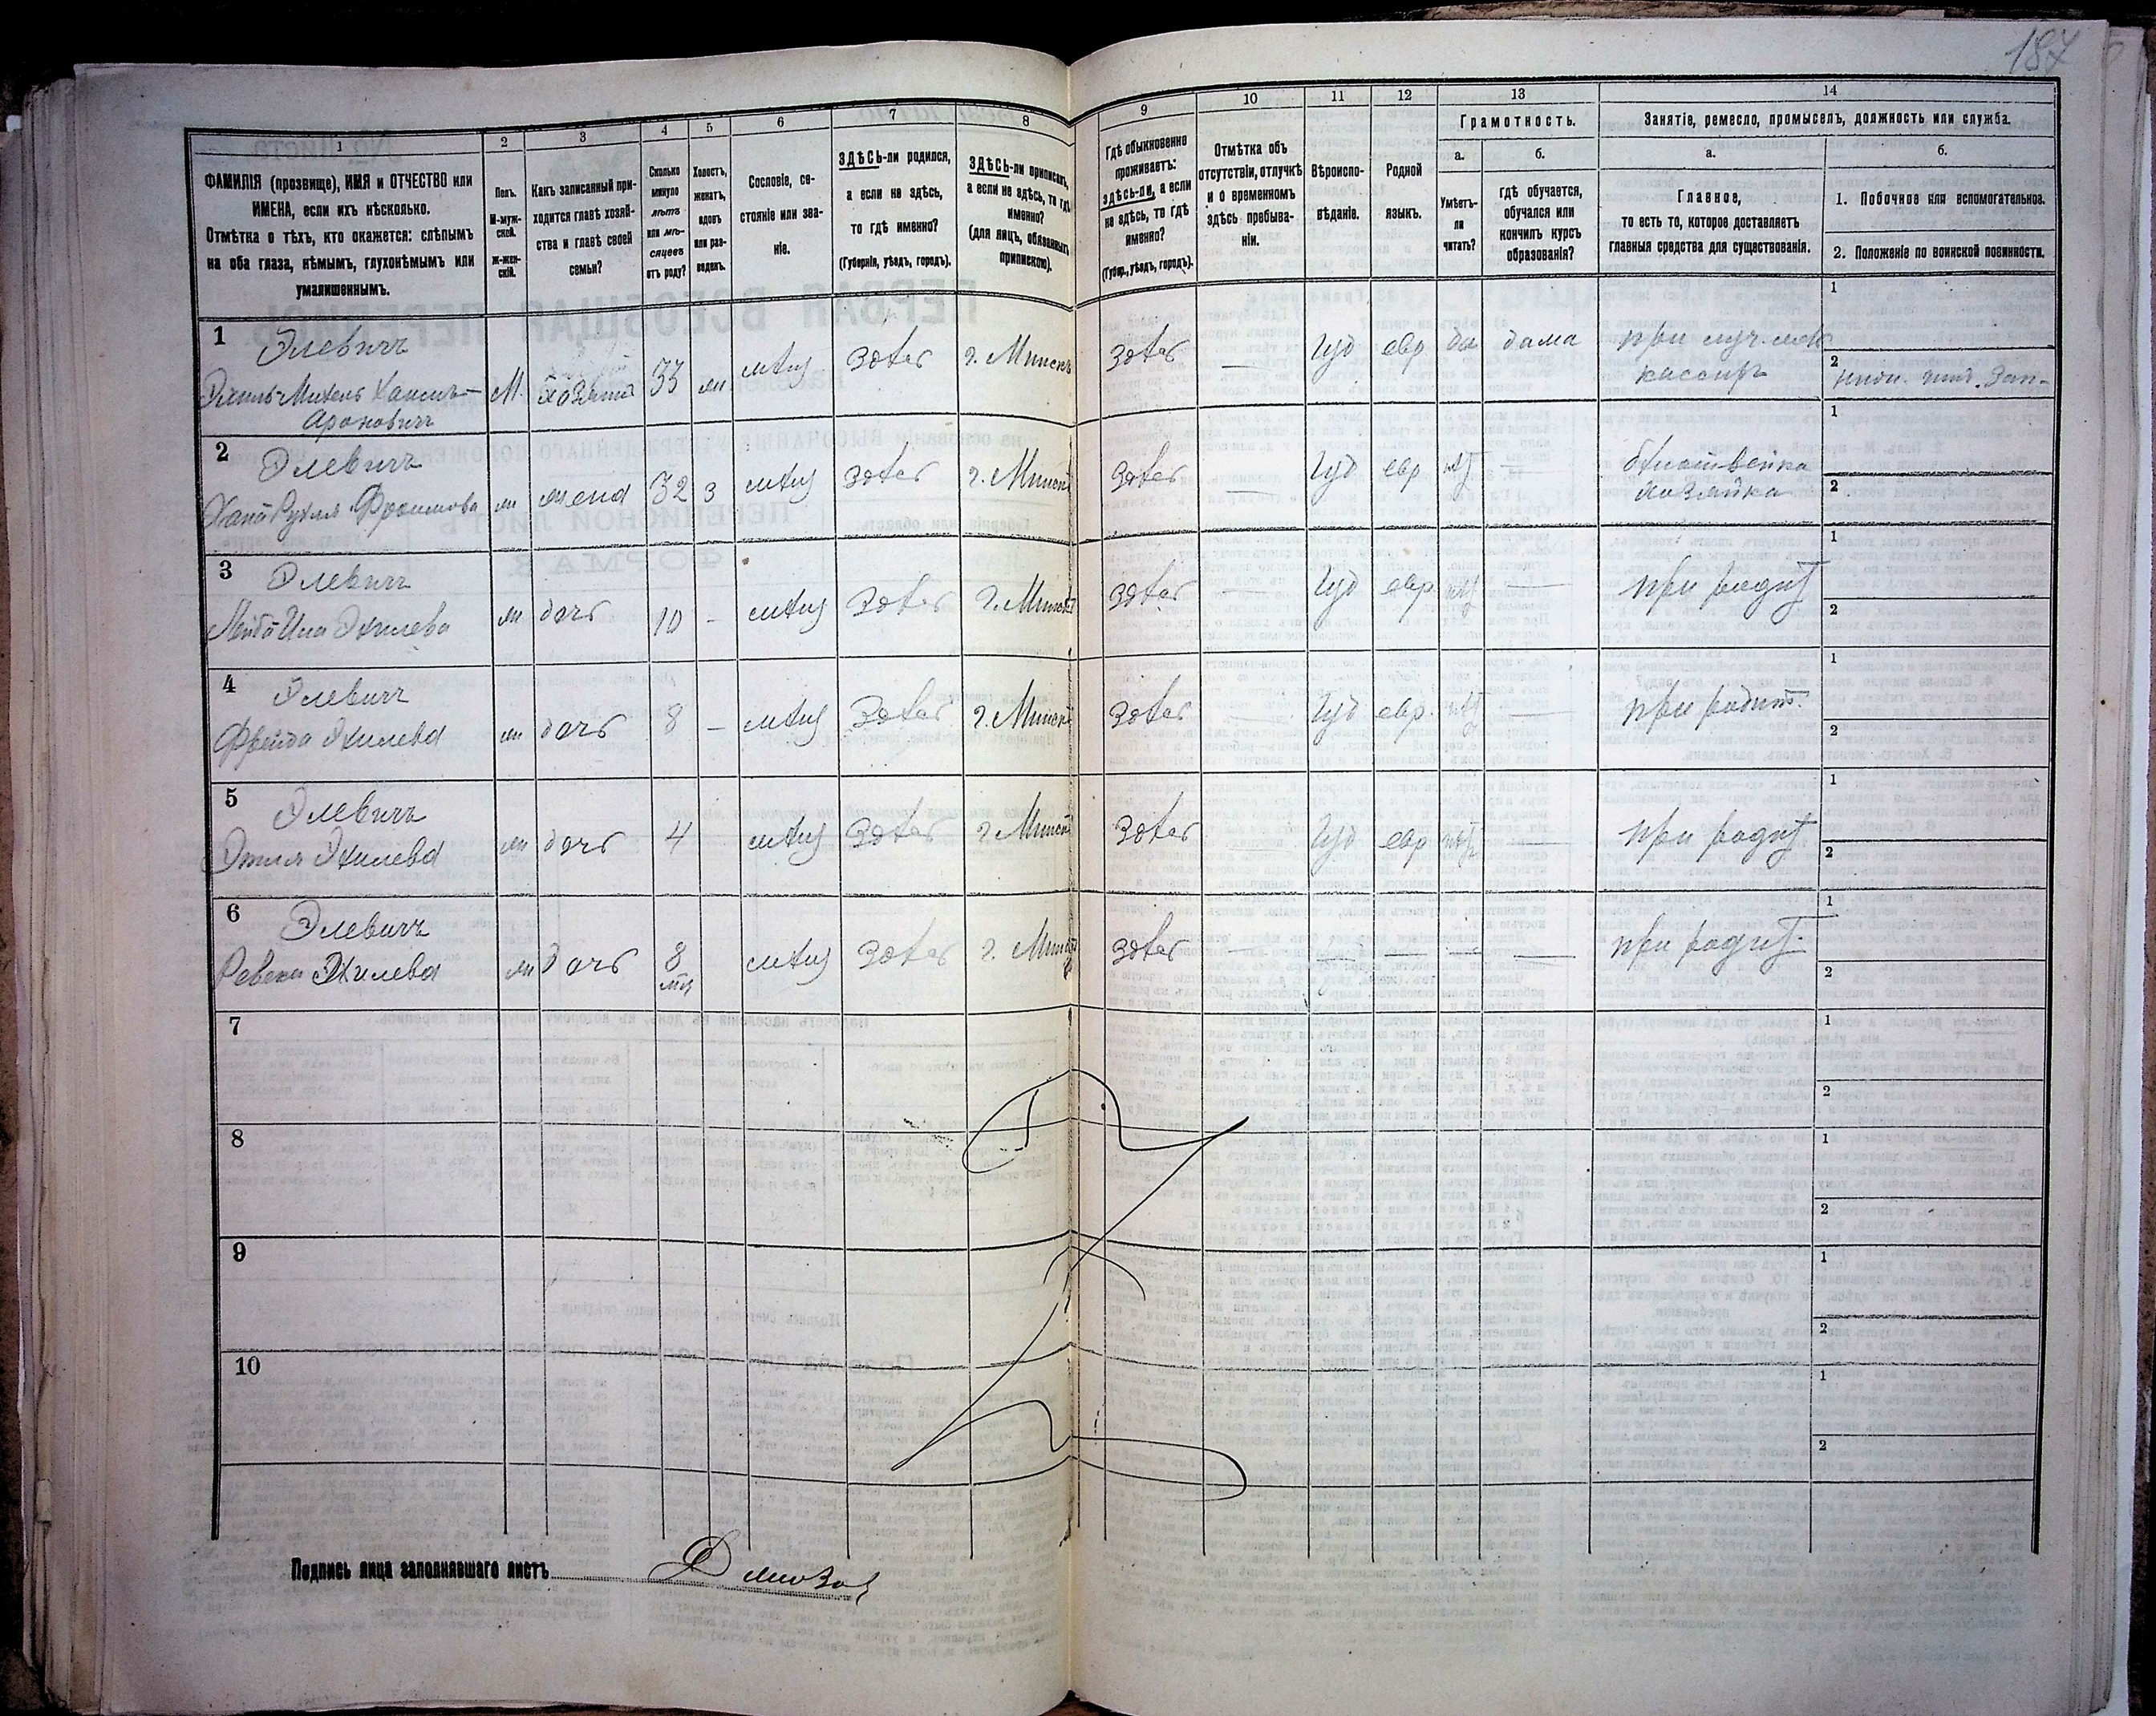 187
1 2 3 4 5 6 7 8 9 10 11 12 13 14
ФАМИЛІЯ (прозвище), ИМЯ и ОТЧЕСТВО или
ИМЕНА, если ихъ нѣсколько.
Отмѣтка о тѣхъ, кто окажется: слѣпымъ
на оба глаза, нѣмымъ, глухонѣмымъ или
умалишеннымъ.
Полъ.
М-муж-
ской.
Ж-жен-
скій.
Какъ записанный при-
ходится главѣ хозяй-
ства и главѣ своей
семьи?
Сколько
минуло
лѣтъ
или мѣ-
сяцевъ
отъ роду?
Холостъ,
женатъ,
вдовъ
или раз-
веденъ.
Сословіе, со-
стояніе или зва-
ніе.
ЗДѢСЬ-ли родился,
а если не здѣсь,
то гдѣ именно?
(Губернія, уѣздъ, городъ).
ЗДѢСЬ-ли приписанъ,
а если не здѣсь, то гдѣ
именно?
(для лицъ, обязанныхъ
припискою).
Гдѣ обыкновенно
проживаетъ:
здѣсь-ли, а если
не здѣсь, то гдѣ
именно?
(Губер., уѣздъ, городъ).
Отмѣтка объ
отсутствіи, отлучкѣ
и о временномъ
здѣсь пребыва-
ніи.
Вѣроиспо-
вѣданіе.
Родной
языкъ.
Грамотность.
а.
Умѣетъ-
ли
читать?
б.
гдѣ обучается,
обучался или
кончилъ курсъ
образованія?
Занятіе, ремесло, промыселъ, должность или служба.
а.
Главное,
то есть то, которое доставляетъ
главныя средства для существованія.
б.
1. Побочное или вспомогательное.
2. Положеніе по воинской повинности.
1 Элевичъ
Ароновичъ
М. хозяинъ 33 жн мѣщ здѣсь г. Минскъ здѣсь — Іуд евр да дома
кассиръ
1
2
2 Элевичъ
ж жена 32 з мѣщ здѣсь г. Минскъ здѣсь — Іуд евр нѣт
хозяйка
1
2
3 Элевичъ
ж дочь 10 - мѣщ здѣсь г. Минскъ здѣсь — Іуд евр. нѣт — при родит
1
2
4 Элевичъ
Фрейда Эхилева ж дочь 8 — мѣщ здѣсь г. Минскъ здѣсь — Іуд евр. нѣт — при родит.
1
2
5 Элевичъ
Эхилева ж дочь 4 мѣщ здѣсь г. Минскъ здѣсь — Іуд евр нѣт — при родит.
1
2
6 Элевичъ
Ревека Эхилева ж дочь 8 мѣс мѣщ здѣсь г. Минскъ здѣсь — — — — — при родит.
1
2
7
1
2
8
1
2
9
1
2
10
1
2
Подпись лица заполнявшаго листъ